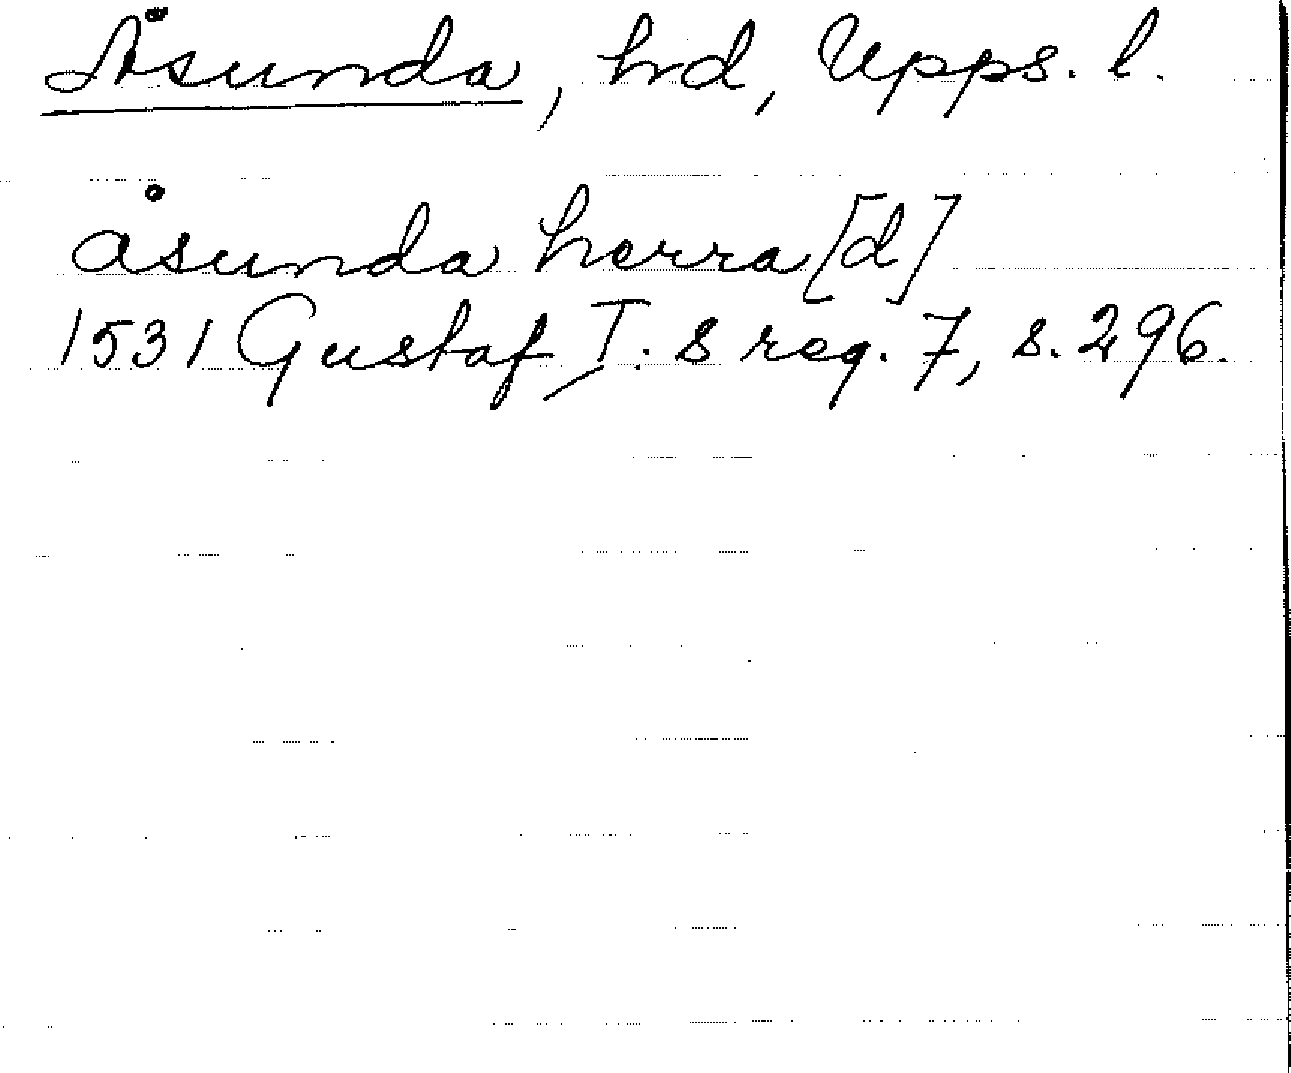 Åsunda, hd, Upps. l.
åsunda herra[d]
1531 Gustaf I:s reg. 7, s. 296.